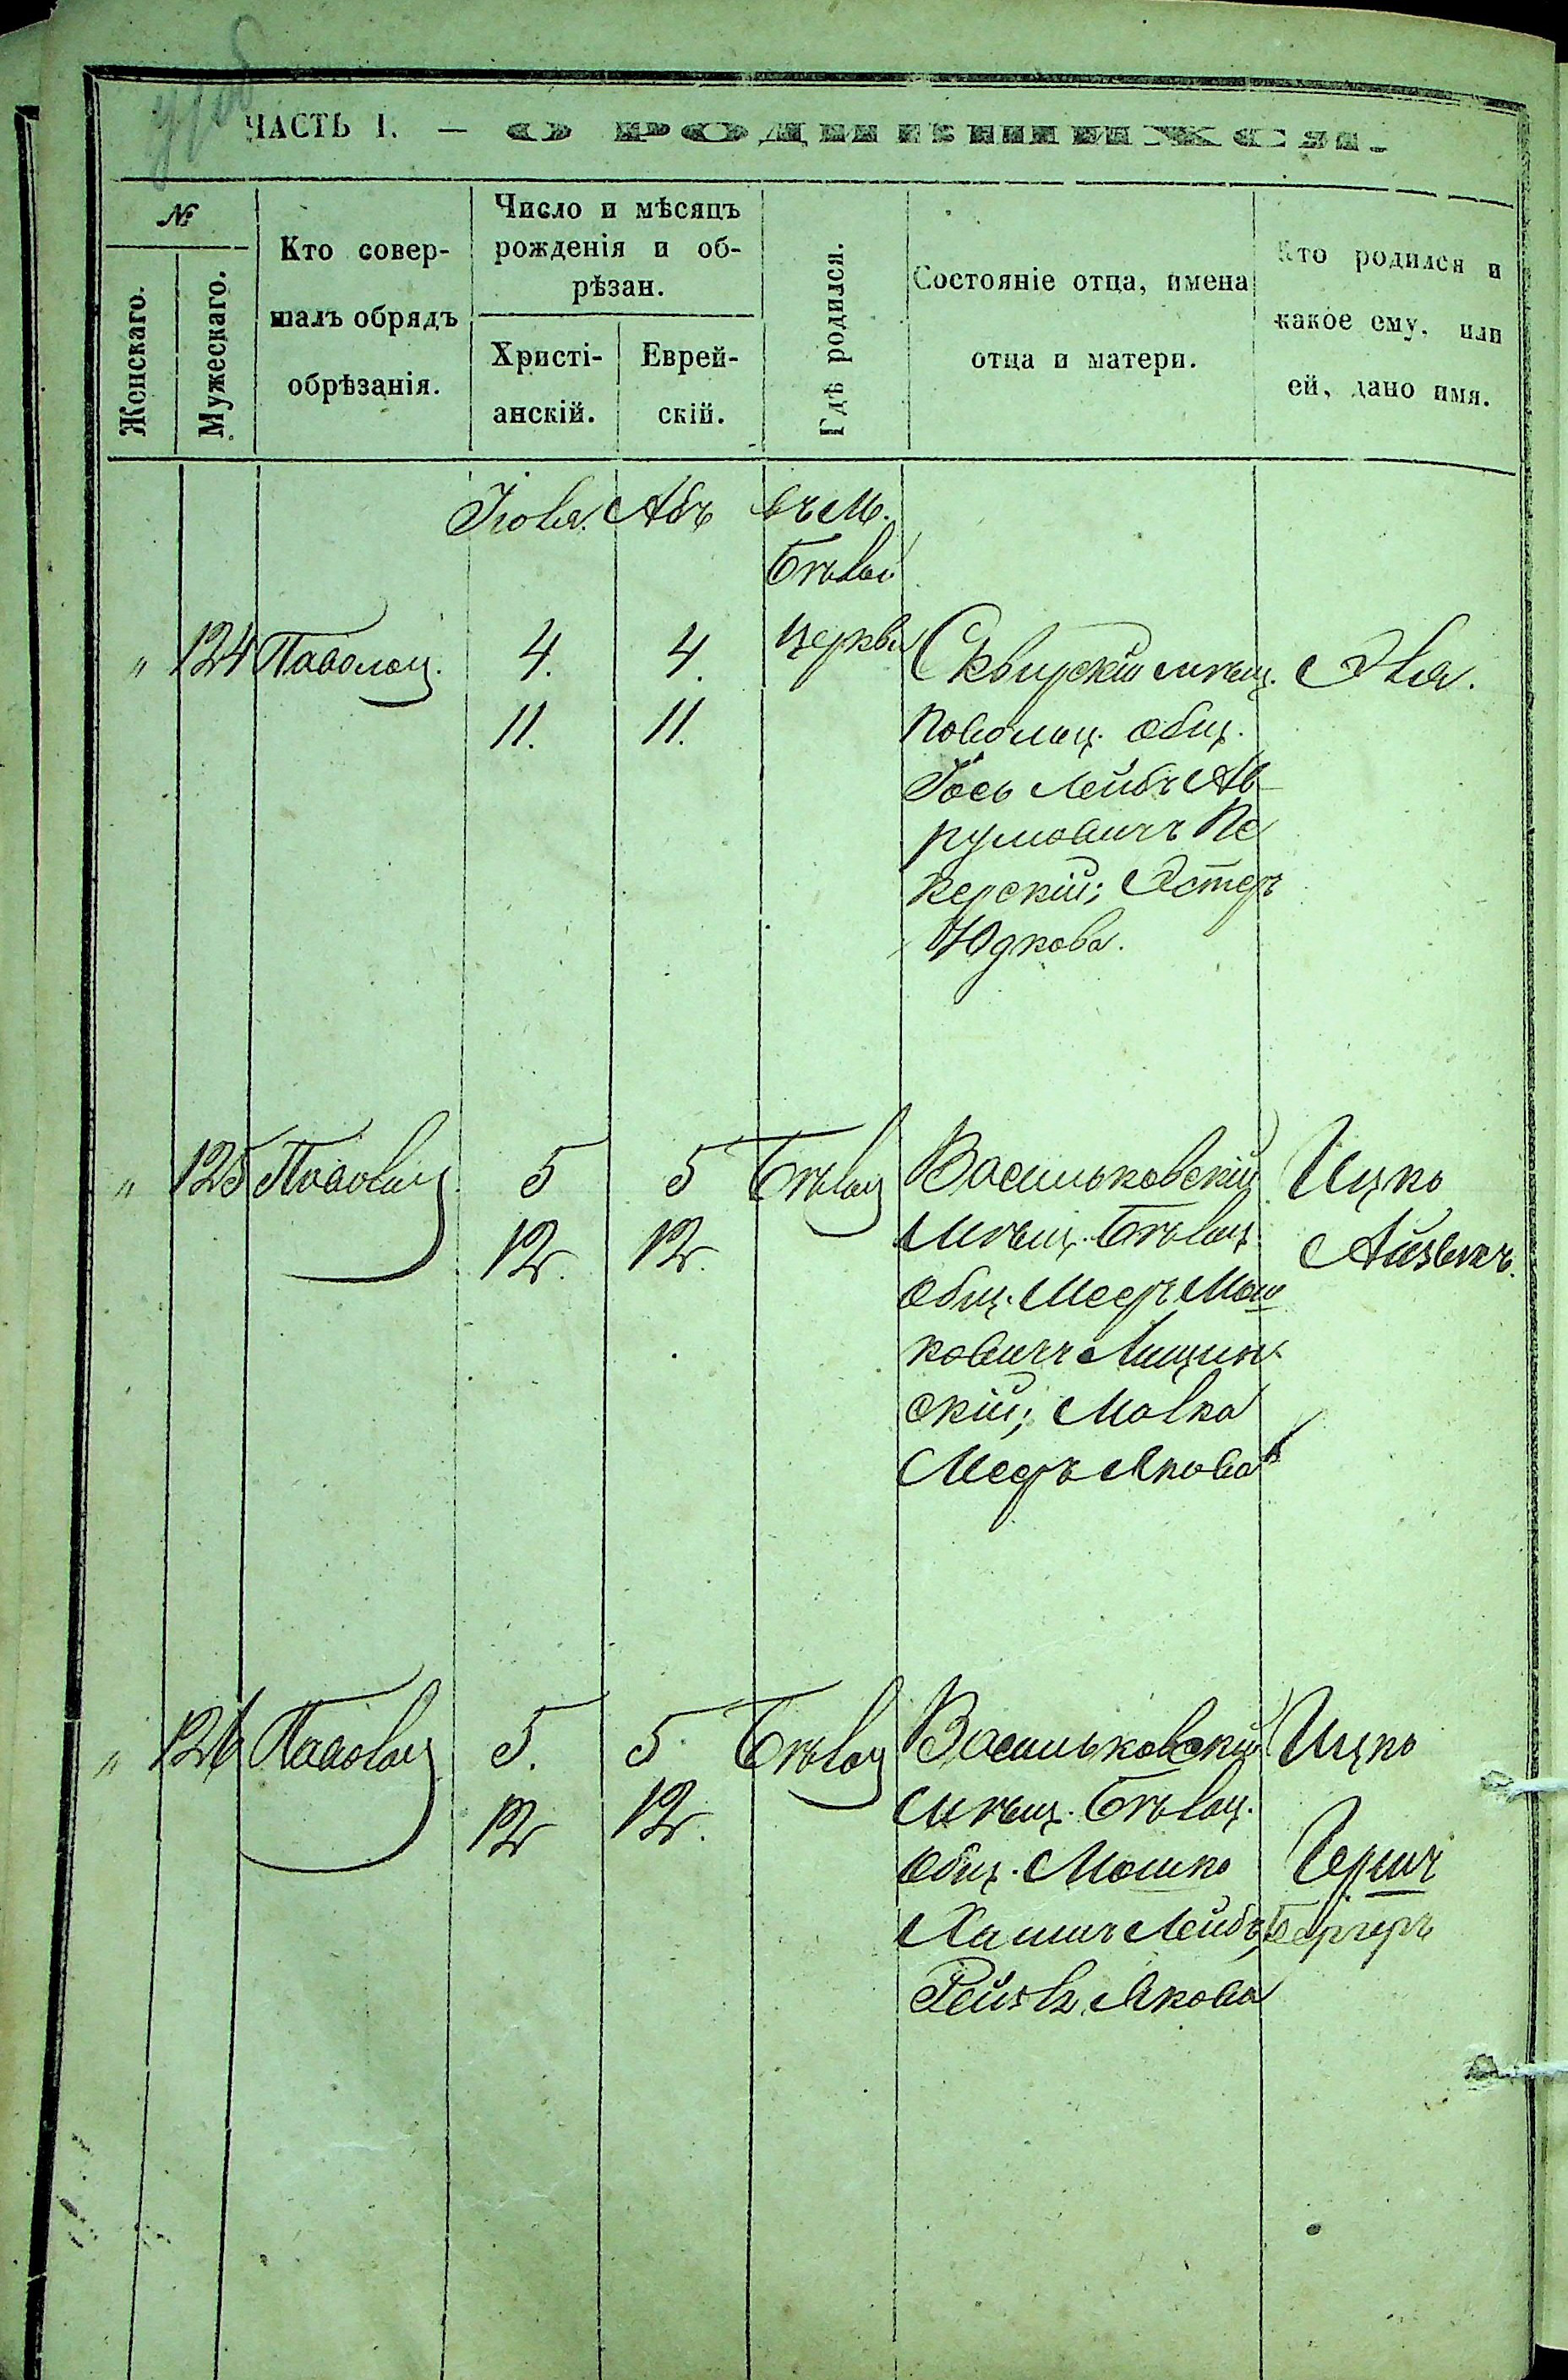 ЧАСТЬ I. — О РОДИВШИХСЯ.
№
Женскаго.
Мужескаго.
Кто совер-
шалъ обрядъ
обрѣзанія.
Число и мѣсяцъ
рожденія и об-
рѣзан.
Христі-
анскій.
Еврей-
скій.
Гдѣ родился.
Состояніе отца, имена
отца и матери.
Кто родился и
какое ему, или
ей, дано имя.
Іюля. Абъ въ М.
Бѣлой
Церкви
" 124 Паволоц. 4. 4.
11. 11.
Сквирскій мѣщ.
Паволоц. общ.
Іось Лейбъ Ав-
румовичъ Пе
керскій; Эстеръ
Юдкова.
Эля.
" 125 5 5 Бѣлоц
12. 12.
Васильковскій
Мѣщ. Бѣлоц.
общ. Меер Мош
ковичъ
скій; Малка
Меер Якова
Ицко
Айзекъ.
" 126 5. 5. Бѣлоц
12 12.
Васильковскій
Мѣщ. Бѣлоц.
Общ. Мошко
Хаимъ Лейбъ,
Рейзя Якова
Ицко
Гершъ
Бергеръ